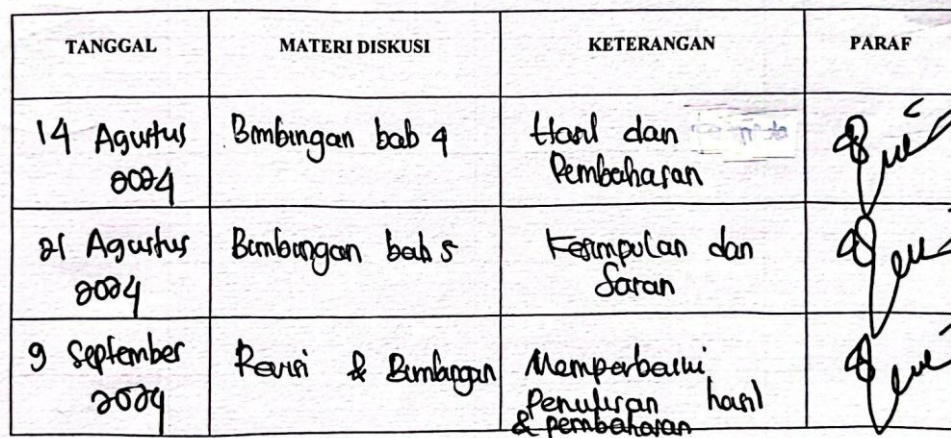 TANGGAL MATERI DISKUSI KETERANGAN PARAF
14 Agustus Bimbingan bab 4 Hasil dan
2024 Pembahasan
21 Agustus Bimbingan bab 5 Kesimpulan dan
2024 Saran
9 September Revisi & Bimbingan Memperbaiki
2024 Penulisan hasil
& pembahasan